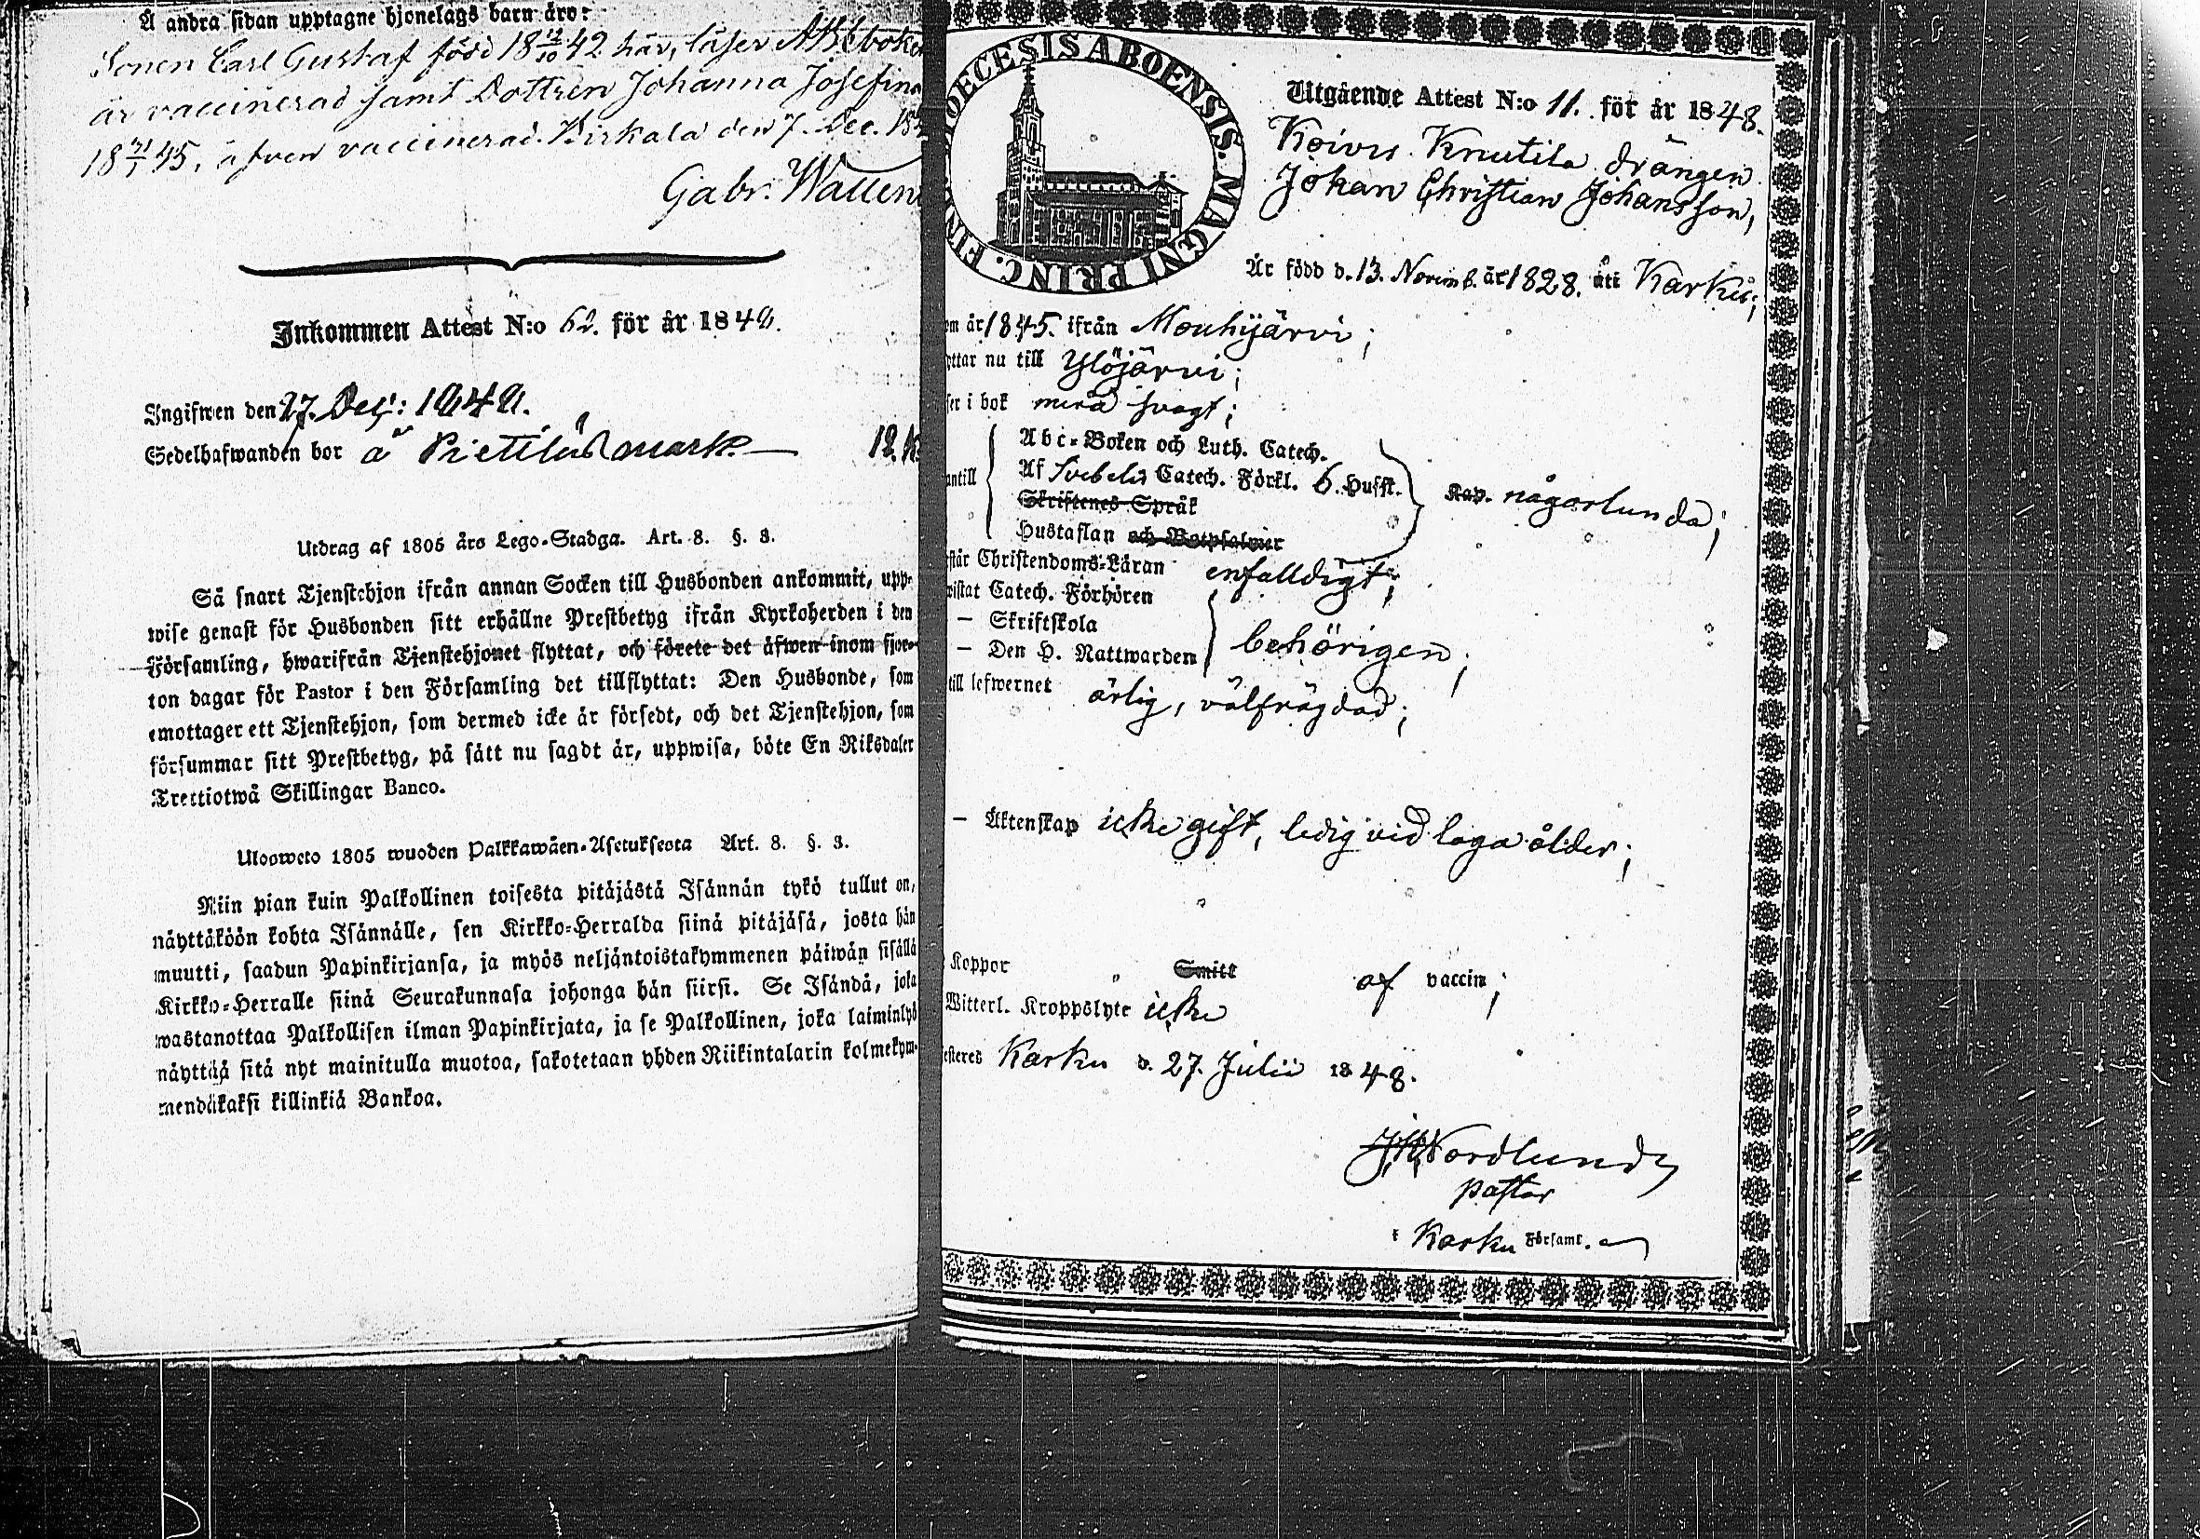 Å andra sidan upptagne hjonelags barn äro:
Sonen Carl Gustaf född 18 12/10 42 här, läser ABCboken
är vaccinerad samt Dottren Johanna Josefina
18 21/1 45, äfven vaccinerad. Birkala den 7. Dec. 18
Gabr. Wallen
Inkommen Attest N:o 62. för år 184
Ingifwen den 27. Dec:
Sedelhafwanden bor å Pietilä mark. 12.
Utdrag af 1805 års Lego-Stadga. Art. 8. §. 3.
Så snart Tjenstehjon ifrån annan Socken till Husbonden ankommit, upp-
wise genast för Husbonden sitt erhållne Prestbetyg ifrån Kyrkoherden i den
Församling, hwarifrån Tjenstehjonet flyttat, och förete det äfwen inom fjor-
ton dagar för Pastor i den Församling det tillflyttat: Den Husbonde, som
emottager ett Tjenstehjon, som dermed icke är försedt, och det Tjenstehjon, som
försummar sitt Prestbetyg, på sätt nu sagdt är, uppwisa, böte En Riksdaler
Trettiotwå Skillingar Banco.
Ulosweto 1805 wuoden Palkkawäen-Asetuksesta Art. 8. §. 3.
Niin pian kuin Palkollinen toisesta pitäjästä Isännän tykö tullut on,
näyttäköön kohta Isännälle, sen Kirkko-Herralda siinä pitäjäsä, josta hän
muutti, saadun Papinkirjansa, ja myös neljäntoistakymmenen päiwän sisällä
Kirkko-Herralle siinä Seurakunnasa johonga hän siirsi. Se Isändä, joka
wastanottaa Palkollisen ilman Papinkirjata, ja se Palkollinen, joka laiminlyö
näyttää sitä nyt mainitulla muotoa, sakotetaan yhden Riikintalarin kolmekym-
mendäkaksi killinkiä Bankoa.
DIOECESIS ABOENSIS. MAGNI PRINC. FIN
Utgående Attest N:o 11. för år 1848.
Koivu Knutila drängen
Johan Christian Johansson,
Är född d. 13. Novemb. år 1828. uti Karku;
om år 1845. ifrån Mouhijärvi;
ttar nu till Ylöjärvi;
ser i bok svagt;
antill
Abc-Boken och Luth. Catech.
Af Svebelii Catech. Förkl. 6. Husst. Kap. någorlunda;
Skriftenes Språk
Hustaflan och Botpsalmer
står Christendoms-Läran enfaldigt;
wistat Catech. Förhören
— Skriftskola
— Den H. Nattwarden behörigen;
till lefwernet ärlig, välfrägdad;
— Äktenskap icke gift, ledig vid laga ålder;
Koppor Smitt af vaccin;
Witterl. Kroppslyte icke
esteres Karku d. 27. Julii 1848.
Nordlund
Pastor
i Karku Församl.